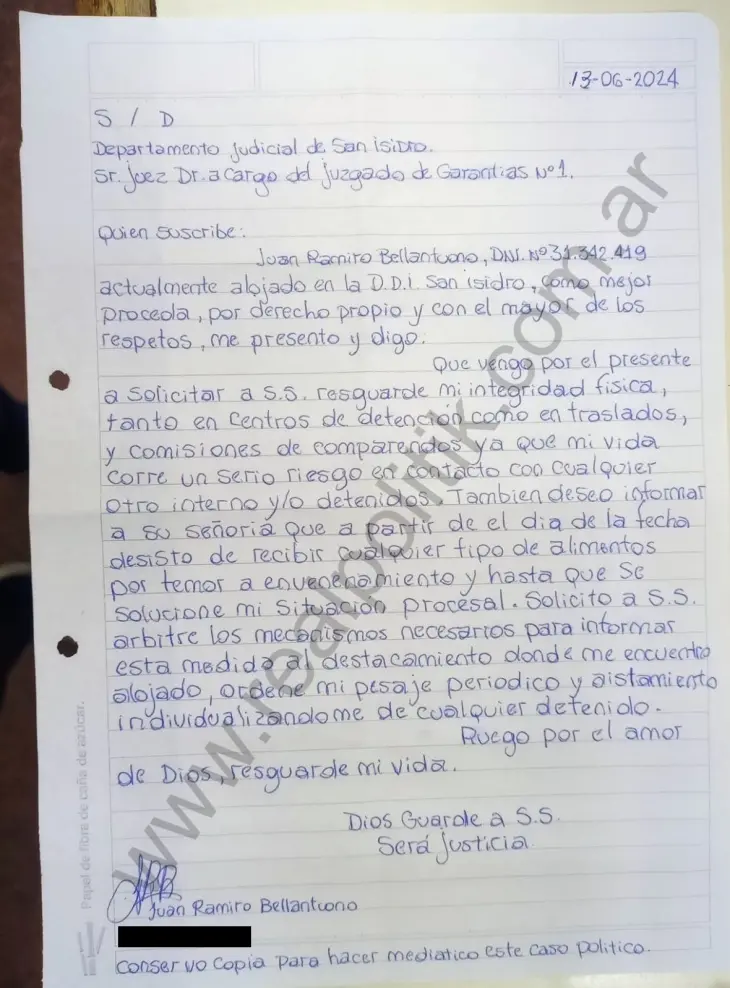 13-06-2024
S / D
Departamento Judicial de San isidro.
Sr. Juez Dr. a cargo del juzgado de Garantias Nº1.
Quien suscribe:
Juan Ramiro Bellantuono, DNI. Nº31.342.419
actualmente alojado en la D.D.I. San isidro, como mejor
proceda, por derecho propio y con el mayor de los
respetos, me presento y digo:
Que vengo por el presente
a solicitar a S.S. resguarde mi integridad fisica,
tanto en centros de detención como en traslados,
y comisiones de comparendos ya que mi vida
corre un serio riesgo en contacto con cualquier
otro interno y/o detenidos. Tambien deseo informar
a su señoria que a partir de el dia de la fecha
desisto de recibir cualquier tipo de alimentos
por temor a envenenamiento y hasta que se
solucione mi situación procesal. Solicito a S.S.
arbitre los mecanismos necesarios para informar
esta medida al destacamento donde me encuentro
alojado, ordene mi pesaje periodico y aislamiento
individualizandome de cualquier detenido.
Ruego por el amor
de Dios, resguarde mi vida.
Dios Guarde a S.S.
Será justicia
Juan Ramiro Bellantuono
conservo copia para hacer mediatico este caso politico.
Papel de fibre de caña de azúcar.
www.realpolitik.com.ar